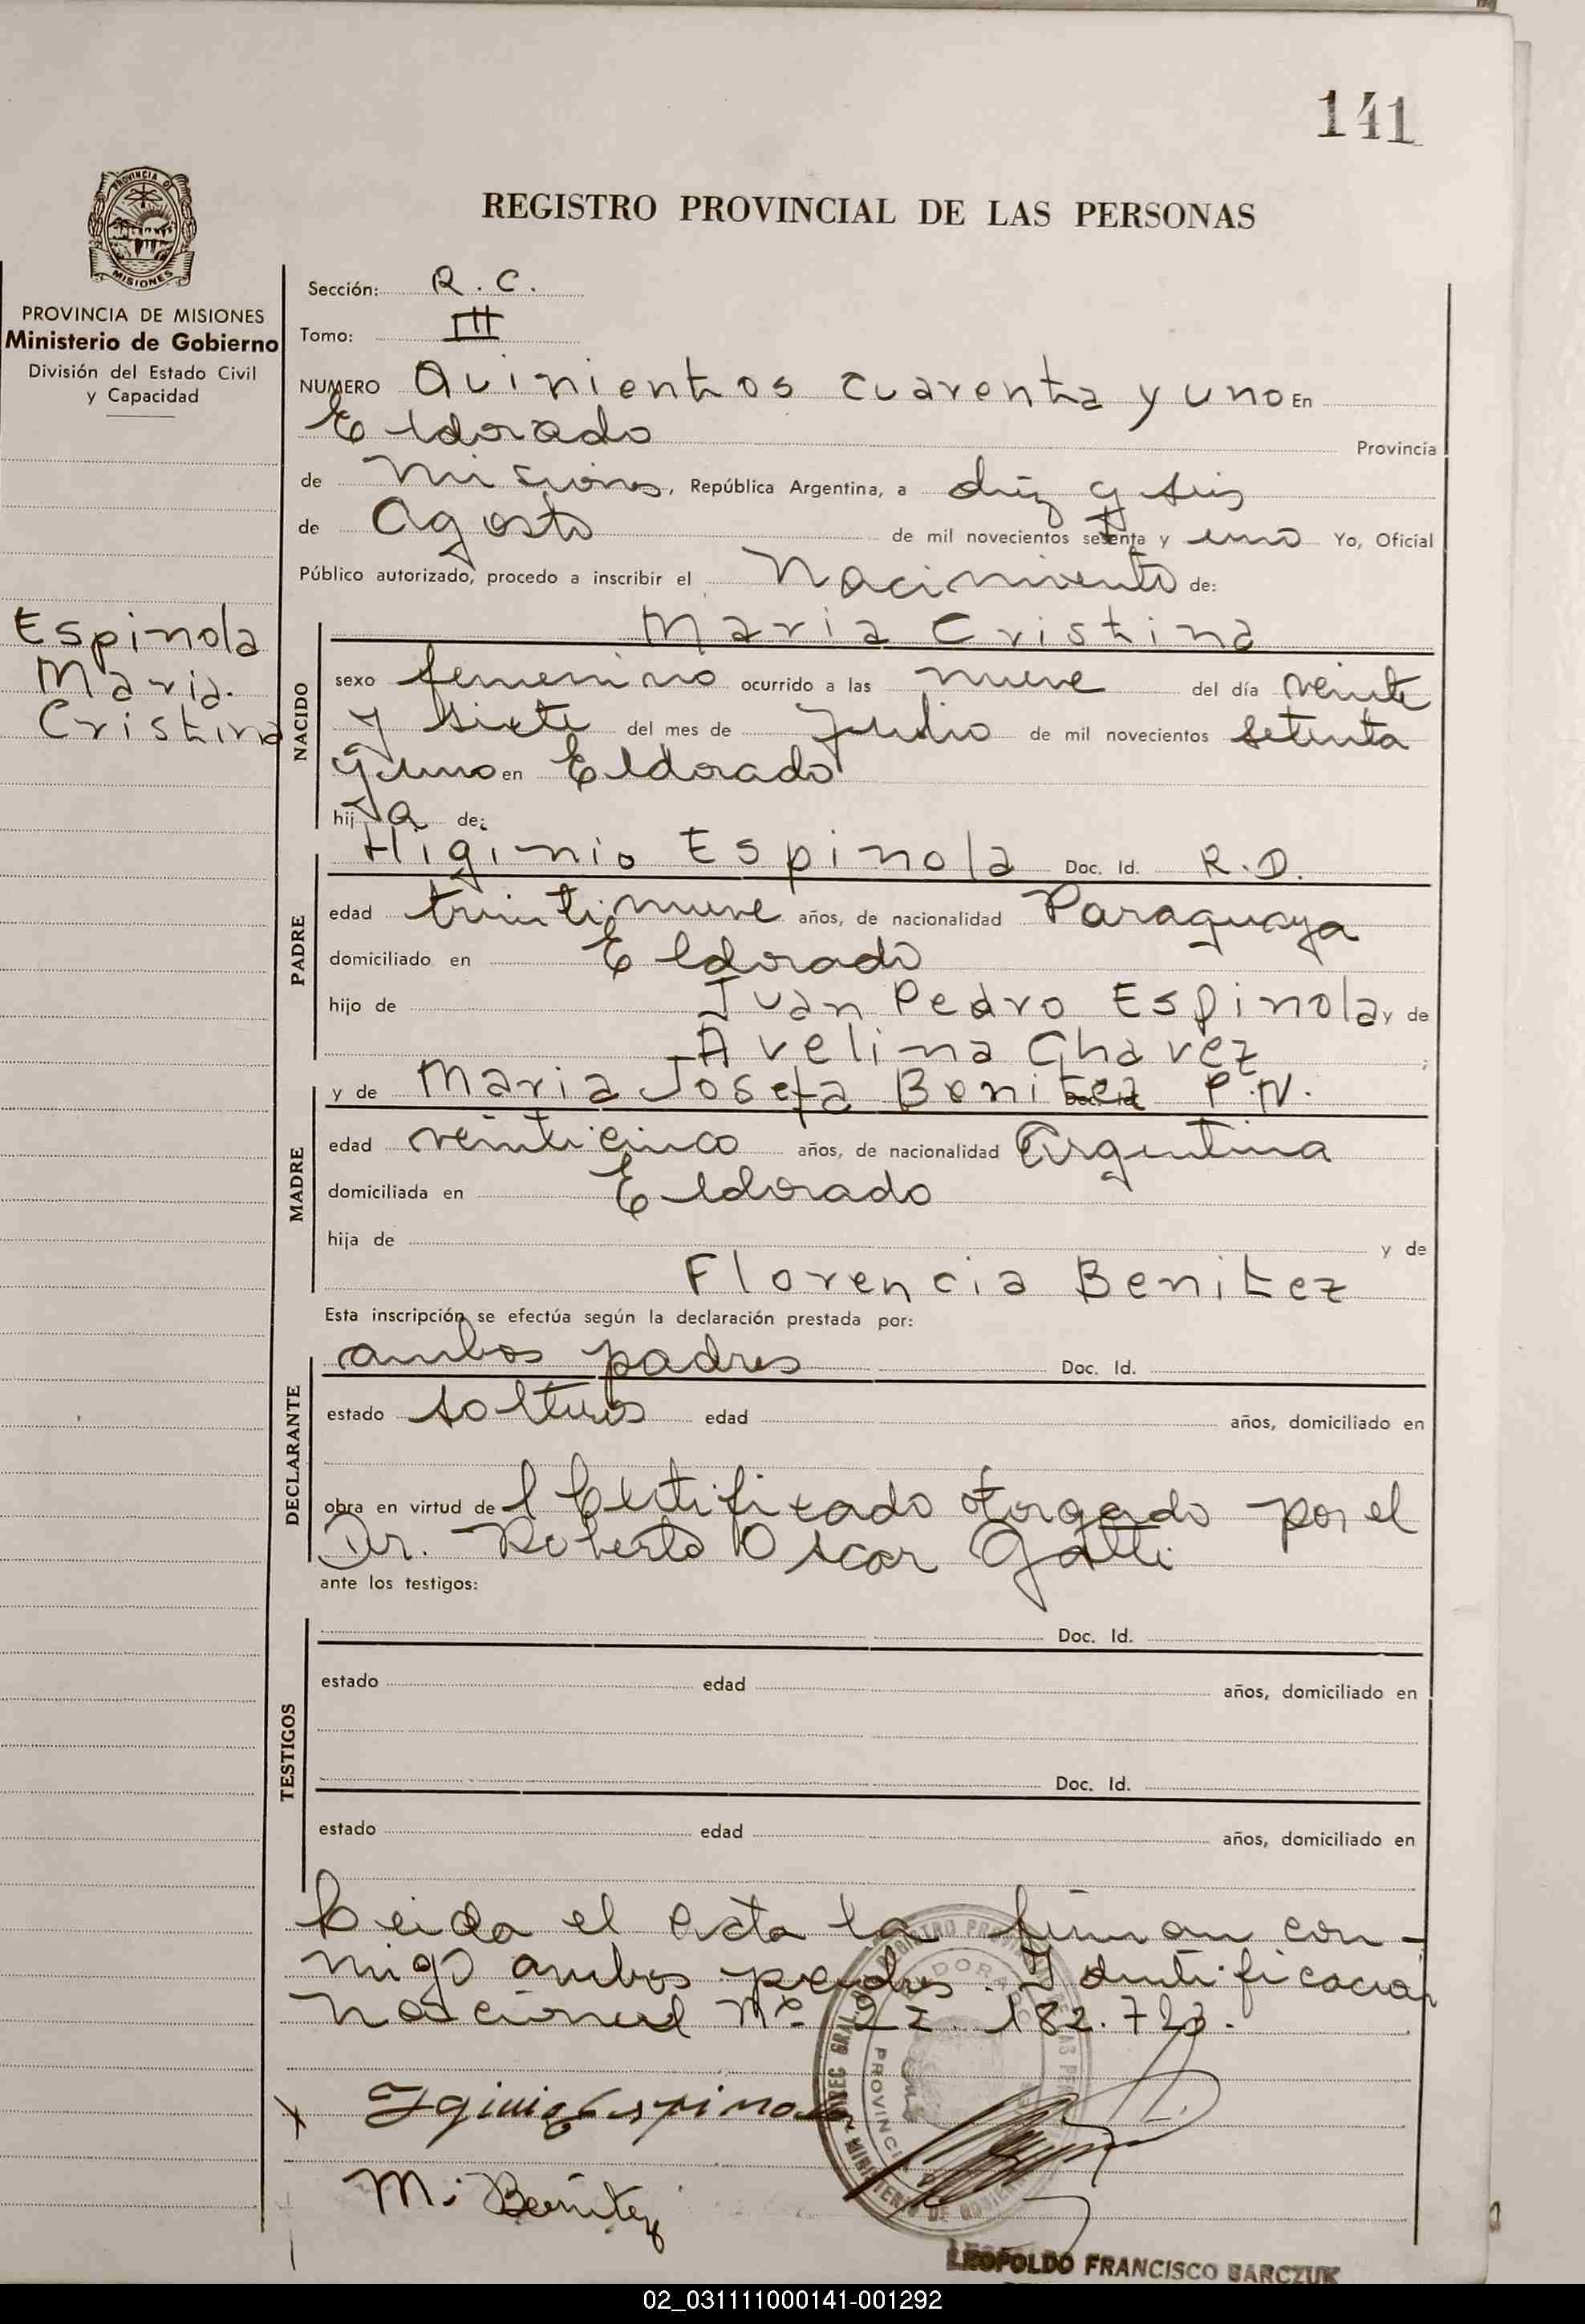 141
PROVINCIA DE
MISIONES
REGISTRO PROVINCIAL DE LAS PERSONAS
PROVINCIA DE MISIONES
Ministerio de Gobierno
División del Estado Civil
y Capacidad
Espinola
Maria
Cristina
Sección: R.C.
Tomo: III
NUMERO Quinientos cuarenta y uno En
Eldorado Provincia
de Misiones, República Argentina, a diez y seis
de Agosto de mil novecientos setenta y uno Yo, Oficial
Público autorizado, procedo a inscribir el Nacimiento de:
NACIDO
Maria Cristina
sexo femenino ocurrido a las nueve del día veinte
y siete del mes de Julio de mil novecientos setenta
y uno en Eldorado
hija de:
PADRE
Higinio Espinola Doc. Id. R.D.
edad treintinueve años, de nacionalidad Paraguaya
domiciliado en Eldorado
hijo de Juan Pedro Espinola y de
Avelina Chavez ;
MADRE
y de Maria Josefa Benitez Doc. Id. P.N.
edad veinticinco años, de nacionalidad Argentina
domiciliada en Eldorado
hija de y de
Florencia Benitez
Esta inscripción se efectúa según la declaración prestada por:
DECLARANTE
ambos padres Doc. Id.
estado solteros edad años, domiciliado en
obra en virtud del Certificado otorgado por el
Dr. Roberto Oscar Gatti
ante los testigos:
TESTIGOS
Doc. Id.
estado edad años, domiciliado en
Doc. Id.
estado edad años, domiciliado en
Leida el acta la firman con-
migo ambos padres. Identificacion
Nacional Nº 22.182.723.
x Iginio Espinola
M. Benitez
LEOPOLDO FRANCISCO BARCZUK
02_031111000141-001292